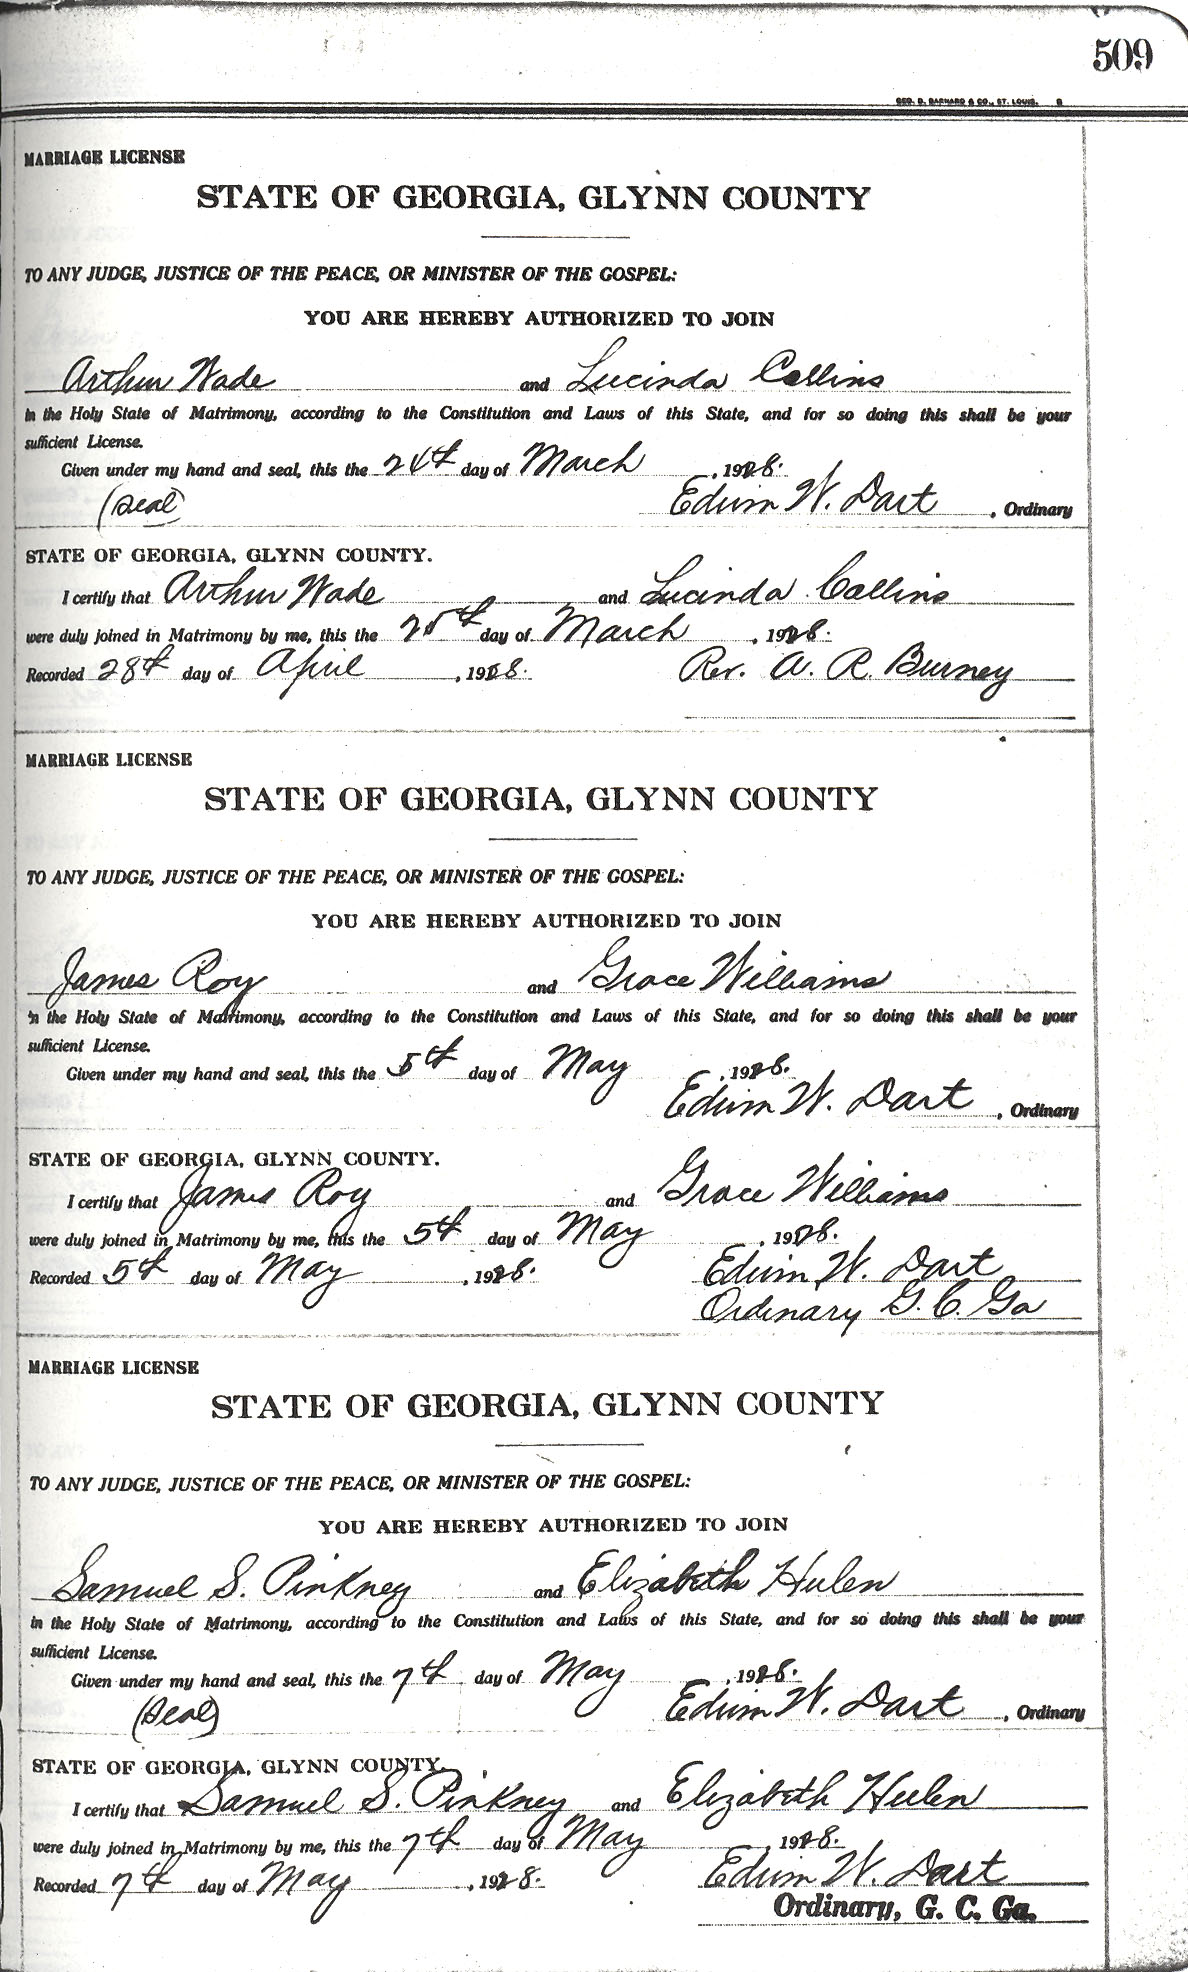 509
GEO. D. BARNARD & CO., ST. LOUIS.
MARRIAGE LICENSE
STATE OF GEORGIA, GLYNN COUNTY
TO ANY JUDGE, JUSTICE OF THE PEACE, OR MINISTER OF THE GOSPEL:
YOU ARE HEREBY AUTHORIZED TO JOIN
Arthur Wade and Lucinda Collins
in the Holy State of Matrimony, according to the Constitution and Laws of this State, and for so doing this shall be your
sufficient License.
Given under my hand and seal, this the 24th day of March, 1928.
(Seal) Edwin W. Dart, Ordinary
STATE OF GEORGIA, GLYNN COUNTY.
I certify that Arthur Wade and Lucinda Collins
were duly joined in Matrimony by me, this the 25th day of March, 1928.
Recorded 28th day of April, 1928. Rev. A. R. Burney
MARRIAGE LICENSE
STATE OF GEORGIA, GLYNN COUNTY
TO ANY JUDGE, JUSTICE OF THE PEACE, OR MINISTER OF THE GOSPEL:
YOU ARE HEREBY AUTHORIZED TO JOIN
James Roy and Grace Williams
in the Holy State of Matrimony, according to the Constitution and Laws of this State, and for so doing this shall be your
sufficient License.
Given under my hand and seal, this the 5th day of May, 1928.
Edwin W. Dart, Ordinary
STATE OF GEORGIA, GLYNN COUNTY.
I certify that James Roy and Grace Williams
were duly joined in Matrimony by me, this the 5th day of May, 1928.
Recorded 5th day of May, 1928. Edwin W. Dart
Ordinary G. C. Ga
MARRIAGE LICENSE
STATE OF GEORGIA, GLYNN COUNTY
TO ANY JUDGE, JUSTICE OF THE PEACE, OR MINISTER OF THE GOSPEL:
YOU ARE HEREBY AUTHORIZED TO JOIN
Samuel S. Pinkney and Elizabeth Hulen
in the Holy State of Matrimony, according to the Constitution and Laws of this State, and for so doing this shall be your
sufficient License.
Given under my hand and seal, this the 7th day of May, 1928.
(Seal) Edwin W. Dart, Ordinary
STATE OF GEORGIA, GLYNN COUNTY.
I certify that Samuel S. Pinkney and Elizabeth Hulen
were duly joined in Matrimony by me, this the 7th day of May, 1928.
Recorded 7th day of May, 1928. Edwin W. Dart
Ordinary, G. C. Ga.